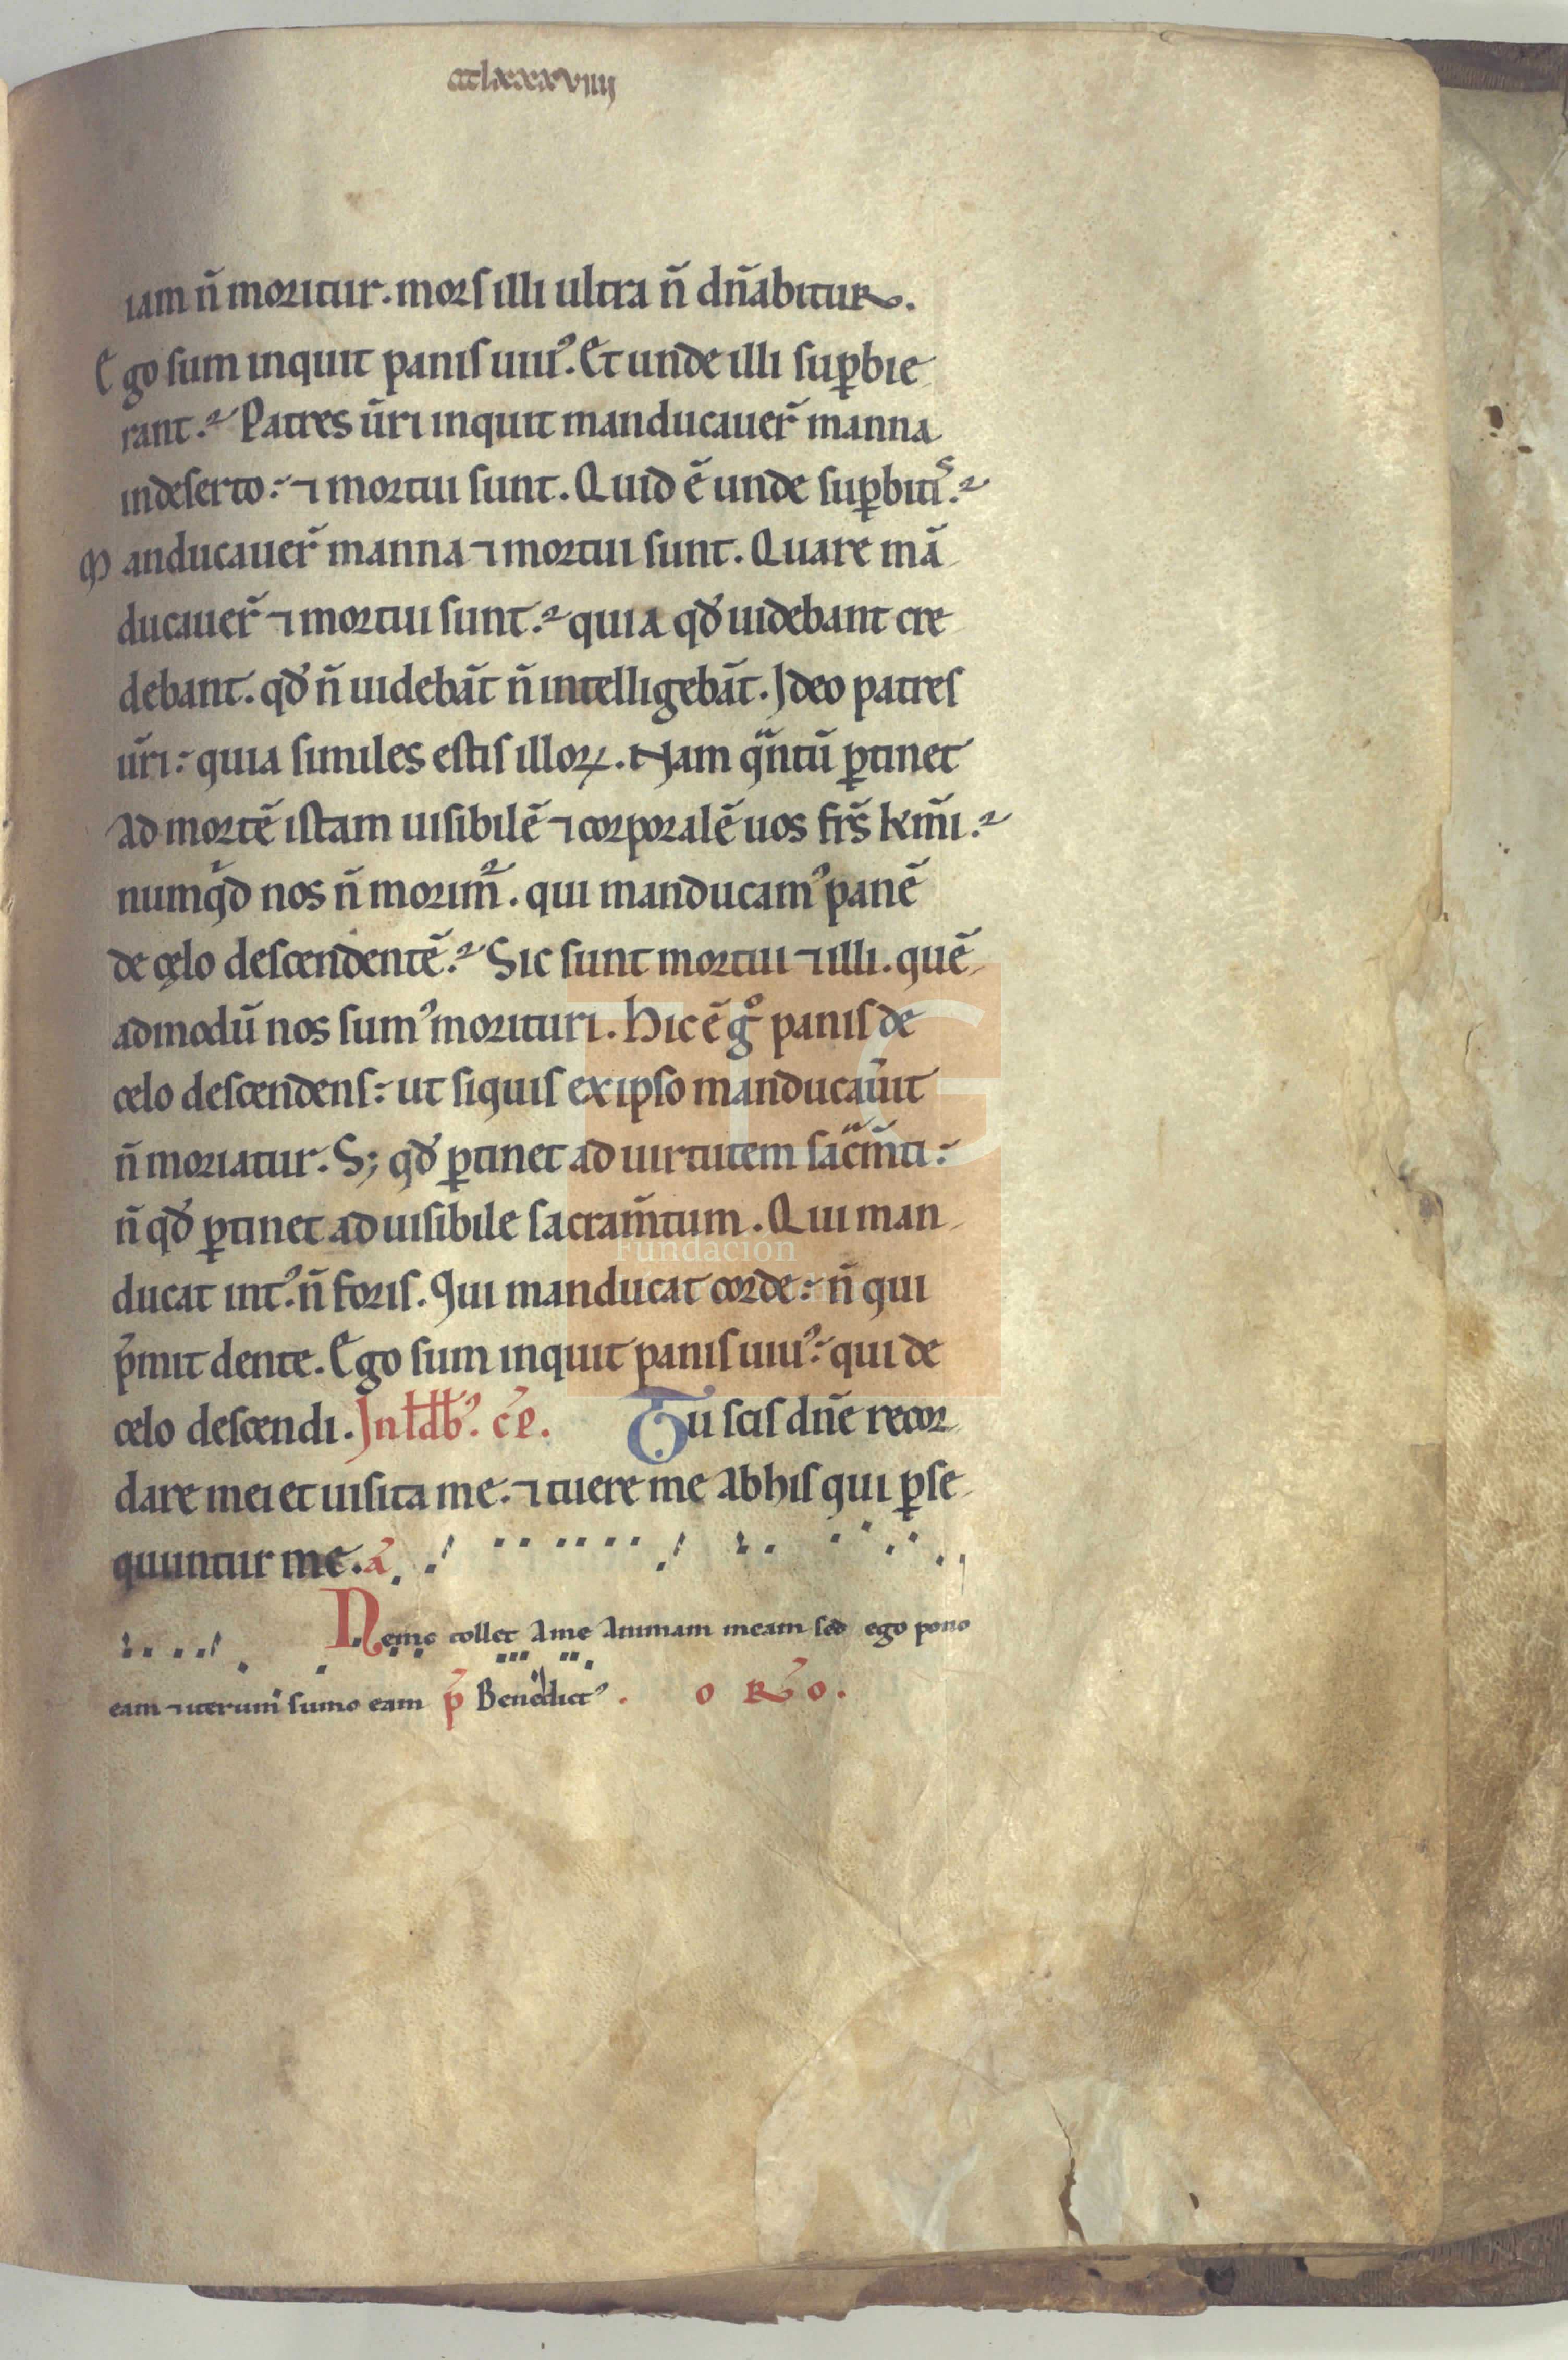 cclxxxviiij
iam n̄ moritur. mors illi ultra n̄ dn̄abitur.
Ego sum inquit panis uiuꝰ. Et unde illi suꝑbie
rant. Patres ūri inquit manducauer̄ manna
indeserto: ⁊ mortui sunt. Quid ē unde suꝑbitis.
Manducauer̄ manna ⁊ mortui sunt. Quare mā
ducauer̄ ⁊ mortui sunt. quia qđ uidebant cre
debant. qđ n̄ uidebāt n̄ intelligebāt. Ideo patres
ūri: quia similes estis illoꝝ. Nam qͣntū ꝑtinet
ad mortē istam uisibilē ⁊ corporalē uos fr̄s km̄i.
numqͥd nos n̄ morimᷣ. qui manducamꝰ panē
de cęlo descendentē. Sic sunt mortui ⁊ illi. quē
admodū nos sumꝰ morituri. Hic ē gͦ panis de
celo descendens: ut siquis ex ipso manducau̅it
n̄ moriatur. S; qđ ꝑtinet ad uirtutem sacͣm̄ti:
n̄ qđ ꝑtinet ad uisibile sacram̄tum. Qui man
ducat intꝰ. n̄ foris. Qui manducat corde: n̄ qui
p̄mit dente. Ego sum inquit panis uiuꝰ: qui de
celo descendi. In ld̄bꝰ. cap̄. Tu scis dn̄e recor
dare mei et uisita me. ⁊ tuere me ab his qui ꝑse
quuntur me. a̅
Nemo tollet a me animam meam sed ego pono
eam ⁊ iterum sumo eam p̄ Benedictꝰ. o R̄ o.
Fundación